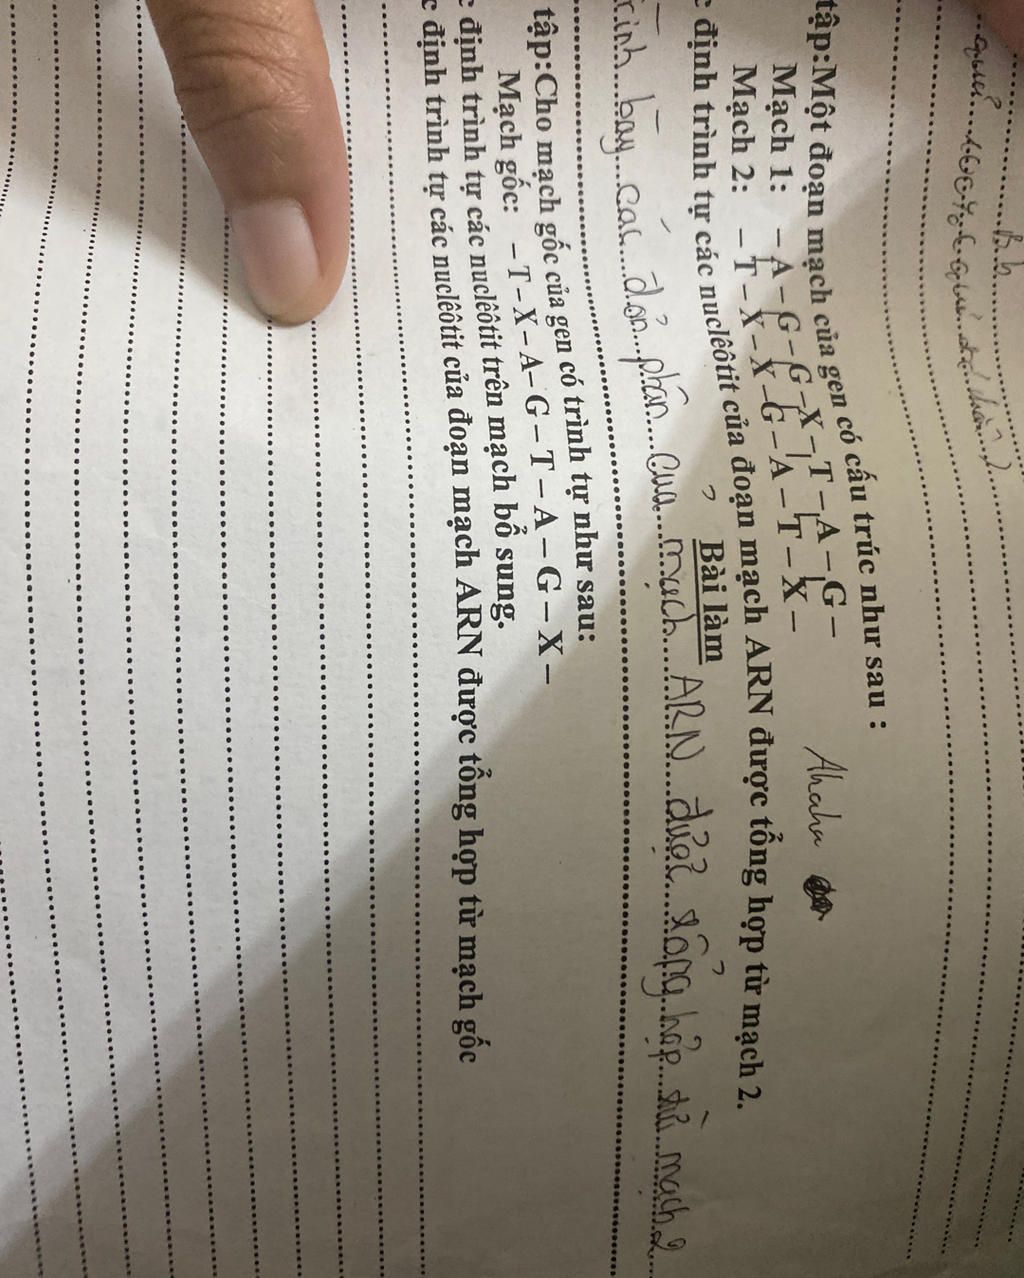 quả
tập:Một đoạn mạch của gen có cấu trúc như sau :
Mạch 1: – A – G – G – X – T – A – G –
Mạch 2: – T – X – X – G – A – T – X –
Ahaha
c định trình tự các nuclêôtit của đoạn mạch ARN được tổng hợp từ mạch 2.
Bài làm
Trình bày các đơn phân của mạch ARN được tổng hợp từ mạch 2
tập:Cho mạch gốc của gen có trình tự như sau:
Mạch gốc: – T – X – A – G – T – A – G – X –
c định trình tự các nuclêôtit trên mạch bổ sung.
c định trình tự các nuclêôtit của đoạn mạch ARN được tổng hợp từ mạch gốc